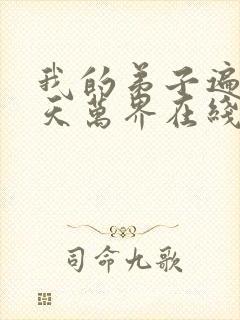 我的弟子遍
天萬界在綫
司命九歌